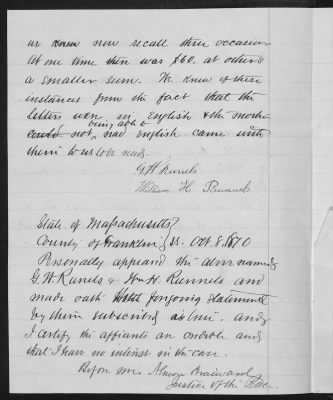 we now recall three occasions
at one time there was $60. at others
a smaller sum. We knew of these
instances from the fact that the
letters were in English & the mother
being able to
could not read English came with
them to us to be read.
G. H. Runels
William H Runnels
State of Massachusetts
County of Franklin } ss. Oct. 8. 1870
Personally appeared the above named
G. H. Runels & Wm H. Runnels and
made oath that foregoing statements
by them subscribed is true. and
I certify the affiants are credible and
that I have no interest in the case.
Before me Brainard
Justice of the Peace.